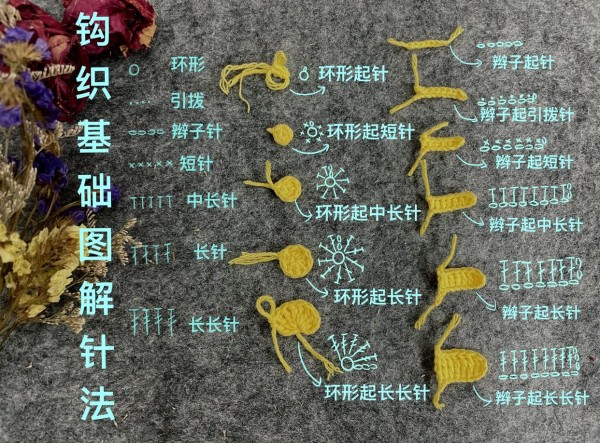 钩织基础图解针法
环形
引拨
辫子针
短针
中长针
长针
长长针
环形起针
环形起短针
环形起中长针
环形起长针
环形起长长针
辫子起针
辫子起引拨针
辫子起短针
辫子起中长针
辫子起长针
辫子起长长针